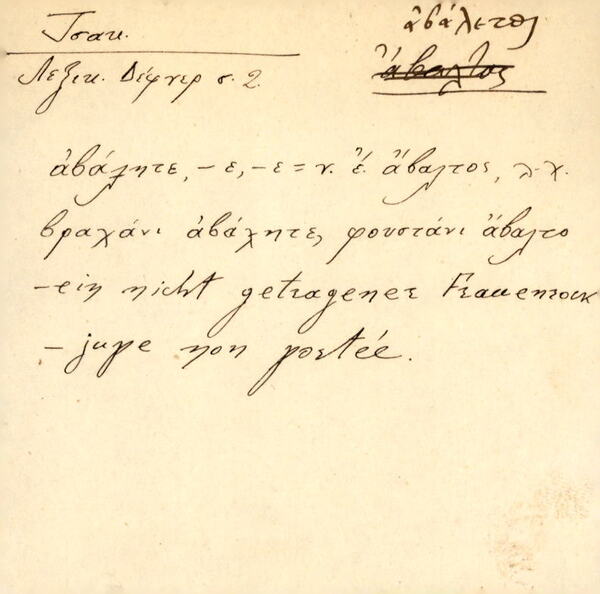 Τσακ.
ἀβάλετος
ἄβαλτος
Λεξικ. Δέφνερ σ. 2.
ἀβάλητε, -ε, -ε = ν. ἑ. ἄβαλτος, π.χ.
βραχάνι ἀβάλητε, φουστάνι ἄβαλτο
- ein nicht getragener Frauenrock
- jupe non portée.